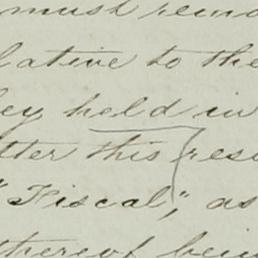 must rema
lative to the
ey held in
tter this reso
"Fiscal", as
thereof bein